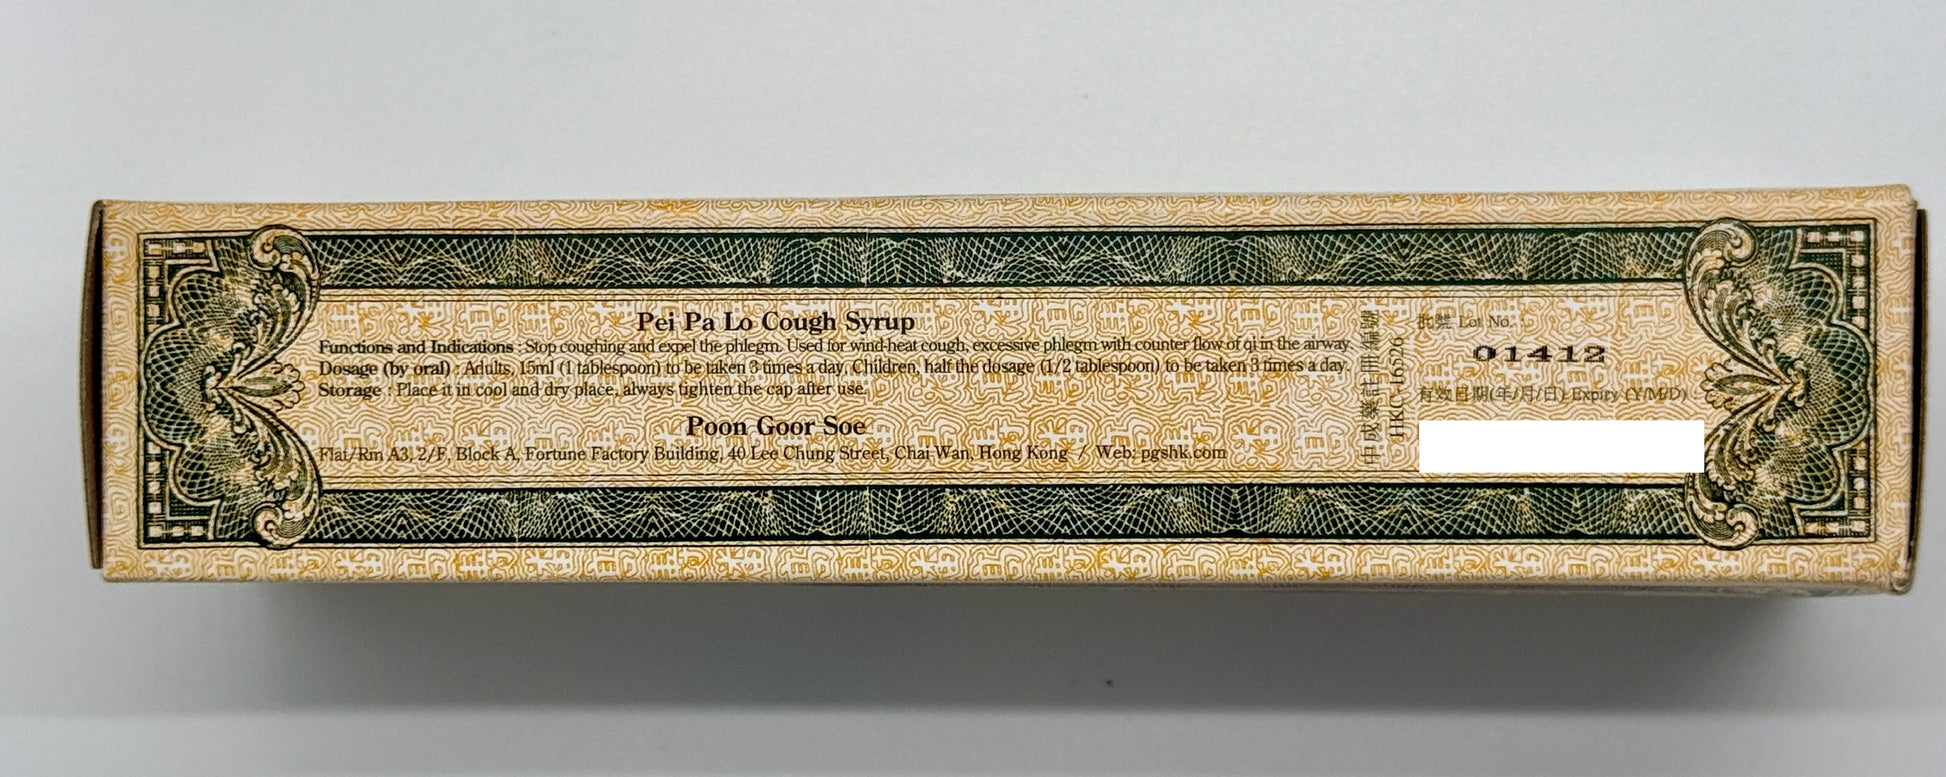 Pei Pa Lo Cough Syrup
Functions and Indications : Stop coughing and expel the phlegm. Used for wind-heat cough, excessive phlegm with counter flow of qi in the airway.
Dosage (by oral) : Adults, 15ml (1 tablespoon) to be taken 3 times a day, Children, half the dosage (1/2 tablespoon) to be taken 3 times a day.
Storage : Place it in cool and dry place, always tighten the cap after use.
Poon Goor Soe
Flat/Rm A3, 2/F, Block A, Fortune Factory Building, 40 Lee Chung Street, Chai Wan, Hong Kong / Web: pgshk.com
中成藥註冊編號
HKC-16526
批號 Lot No. :
01412
有效日期(年/月/日) Expiry (Y/M/D)